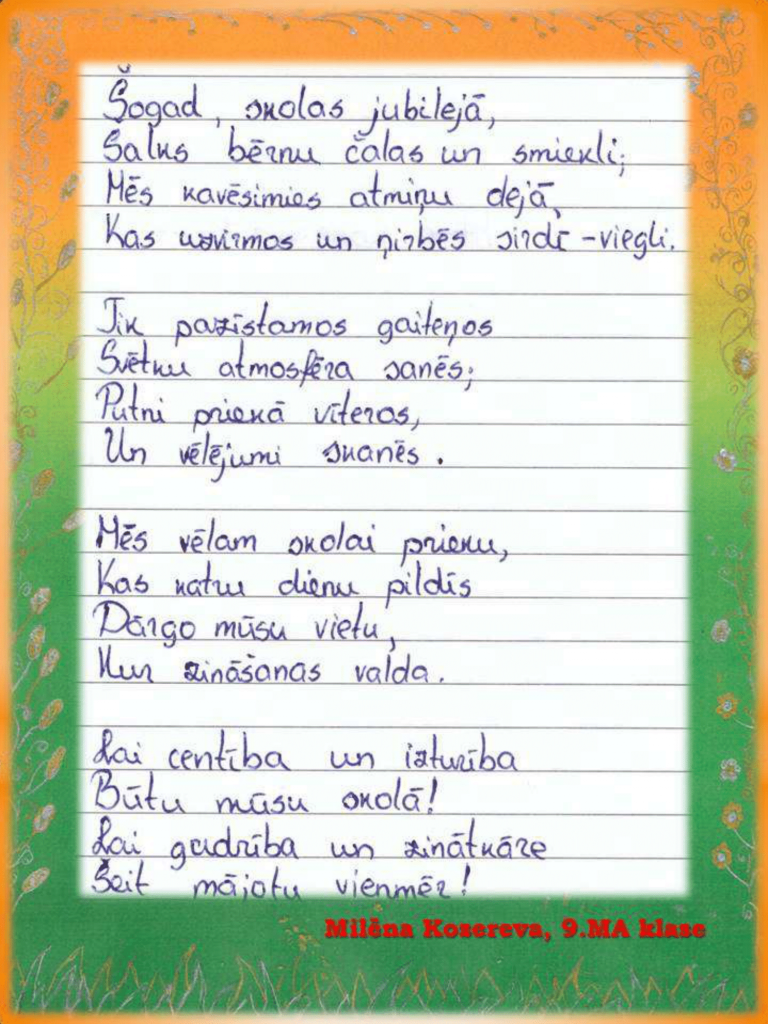 Šogad, skolas jubilejā,
Salks bērnu čalas un smiekli;
Mēs kavēsimies atmiņu dejā,
Kas uzvirmos un ņirbēs sirdī - viegli.
Tik pazīstamos gaiteņos
Svētku atmosfēra sanēs;
Putni priekā vīteros,
Un vēlējumi skanēs.
Mēs vēlam skolai prieku,
Kas katru dienu pildīs
Dārgo mūsu vietu,
Kur zināšanas valda.
Lai centība un izturība
Būtu mūsu skolā!
Lai gudrība un zinātkāre
Šeit mājotu vienmēr!
Milēna Kosereva, 9.MA klase